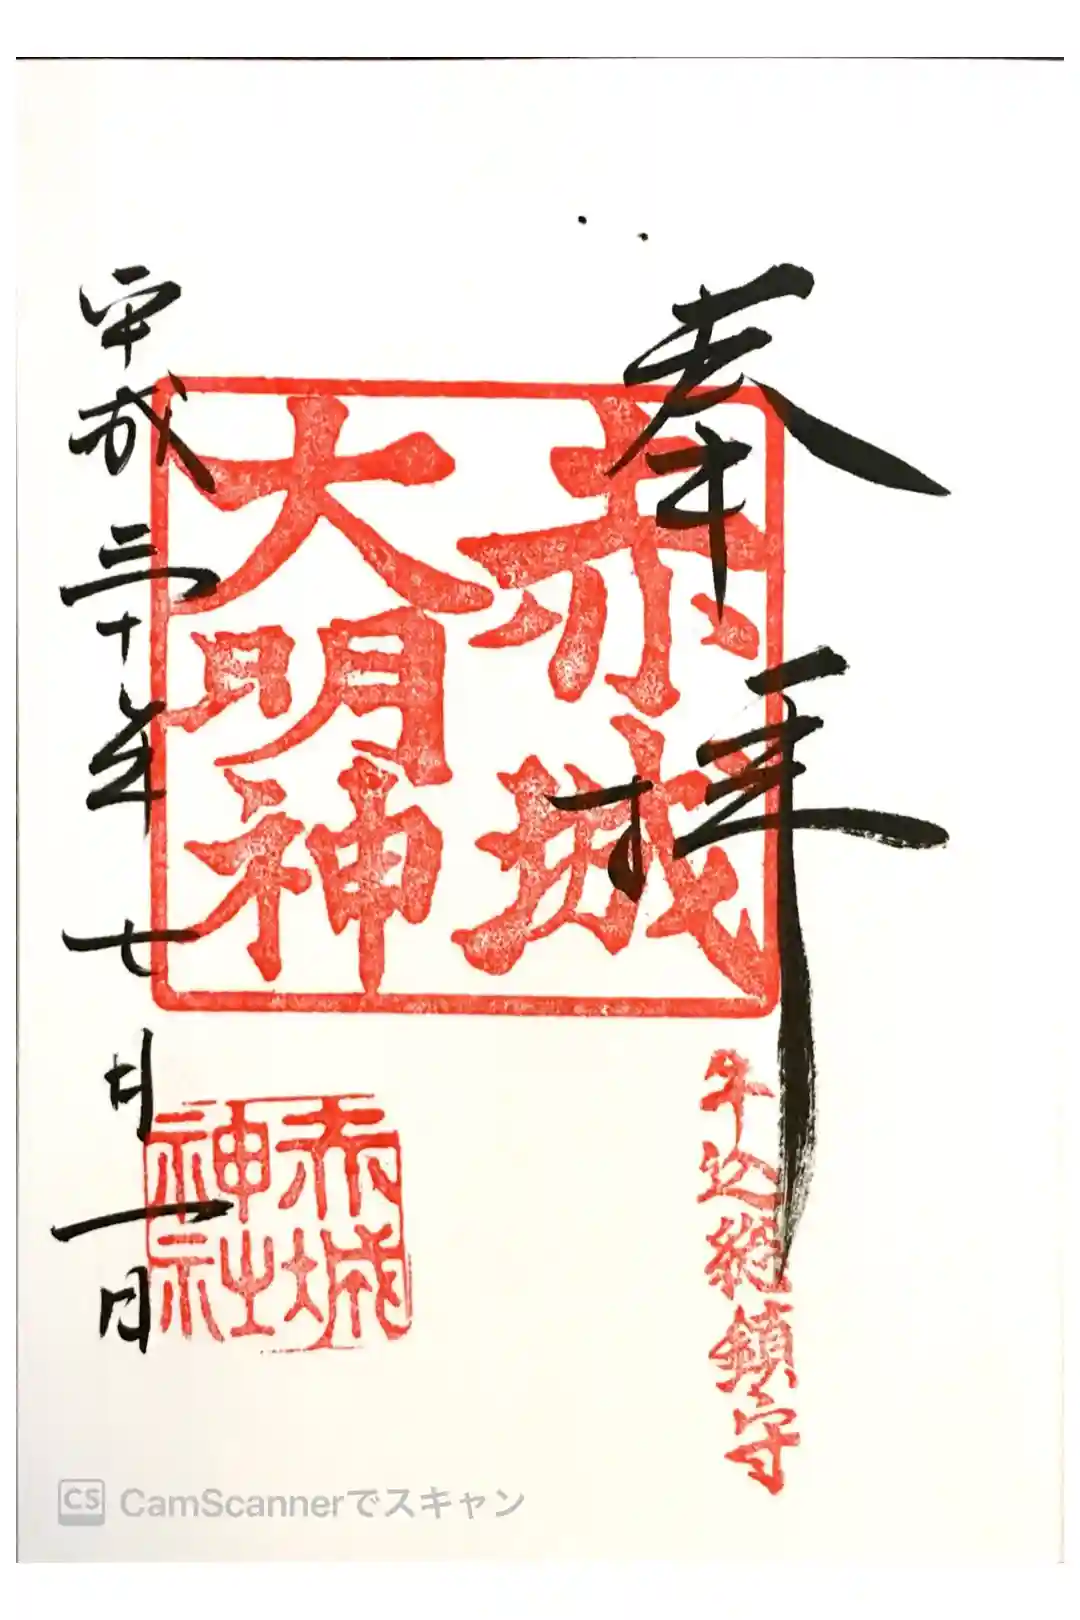 奉拝
牛込総鎮守
赤城
大明神
赤城
神社
平成三十年七月一日
CS CamScannerでスキャン